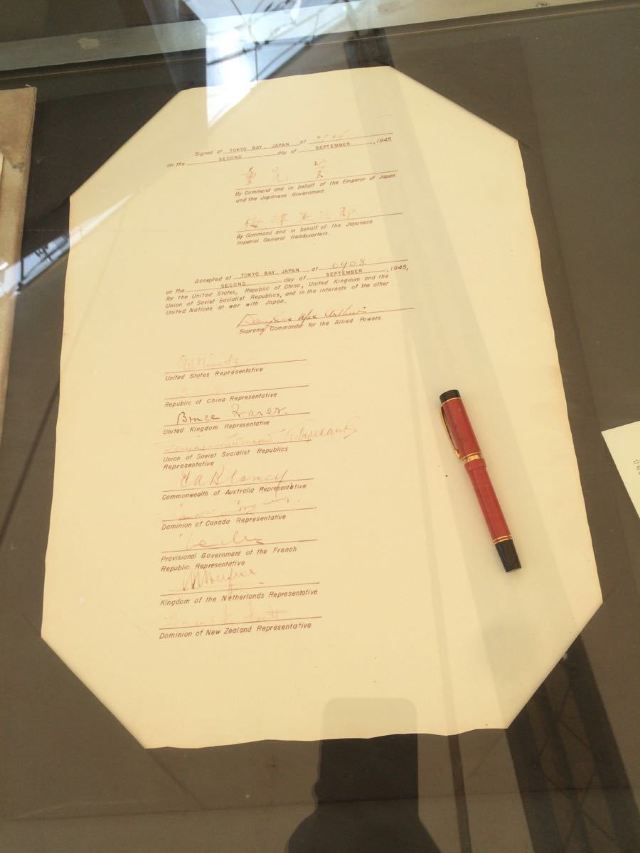 Signed at TOKYO BAY, JAPAN at
on the SECOND day of SEPTEMBER, 1945.
重光 葵
By Command and in behalf of the Emperor of Japan
and the Japanese Government.
梅津美治郎
By Command and in behalf of the Japanese
Imperial General Headquarters.
Accepted at TOKYO BAY, JAPAN at 0908
on the SECOND day of SEPTEMBER, 1945,
for the United States, Republic of China, United Kingdom and the
Union of Soviet Socialist Republics, and in the interests of the other
United Nations at war with Japan.
Douglas MacArthur
Supreme Commander for the Allied Powers.
United States Representative
Republic of China Representative
Bruce Fraser
United Kingdom Representative
Union of Soviet Socialist Republics
Representative
Commonwealth of Australia Representative
Dominion of Canada Representative
Provisional Government of the French
Republic Representative
Kingdom of the Netherlands Representative
Dominion of New Zealand Representative